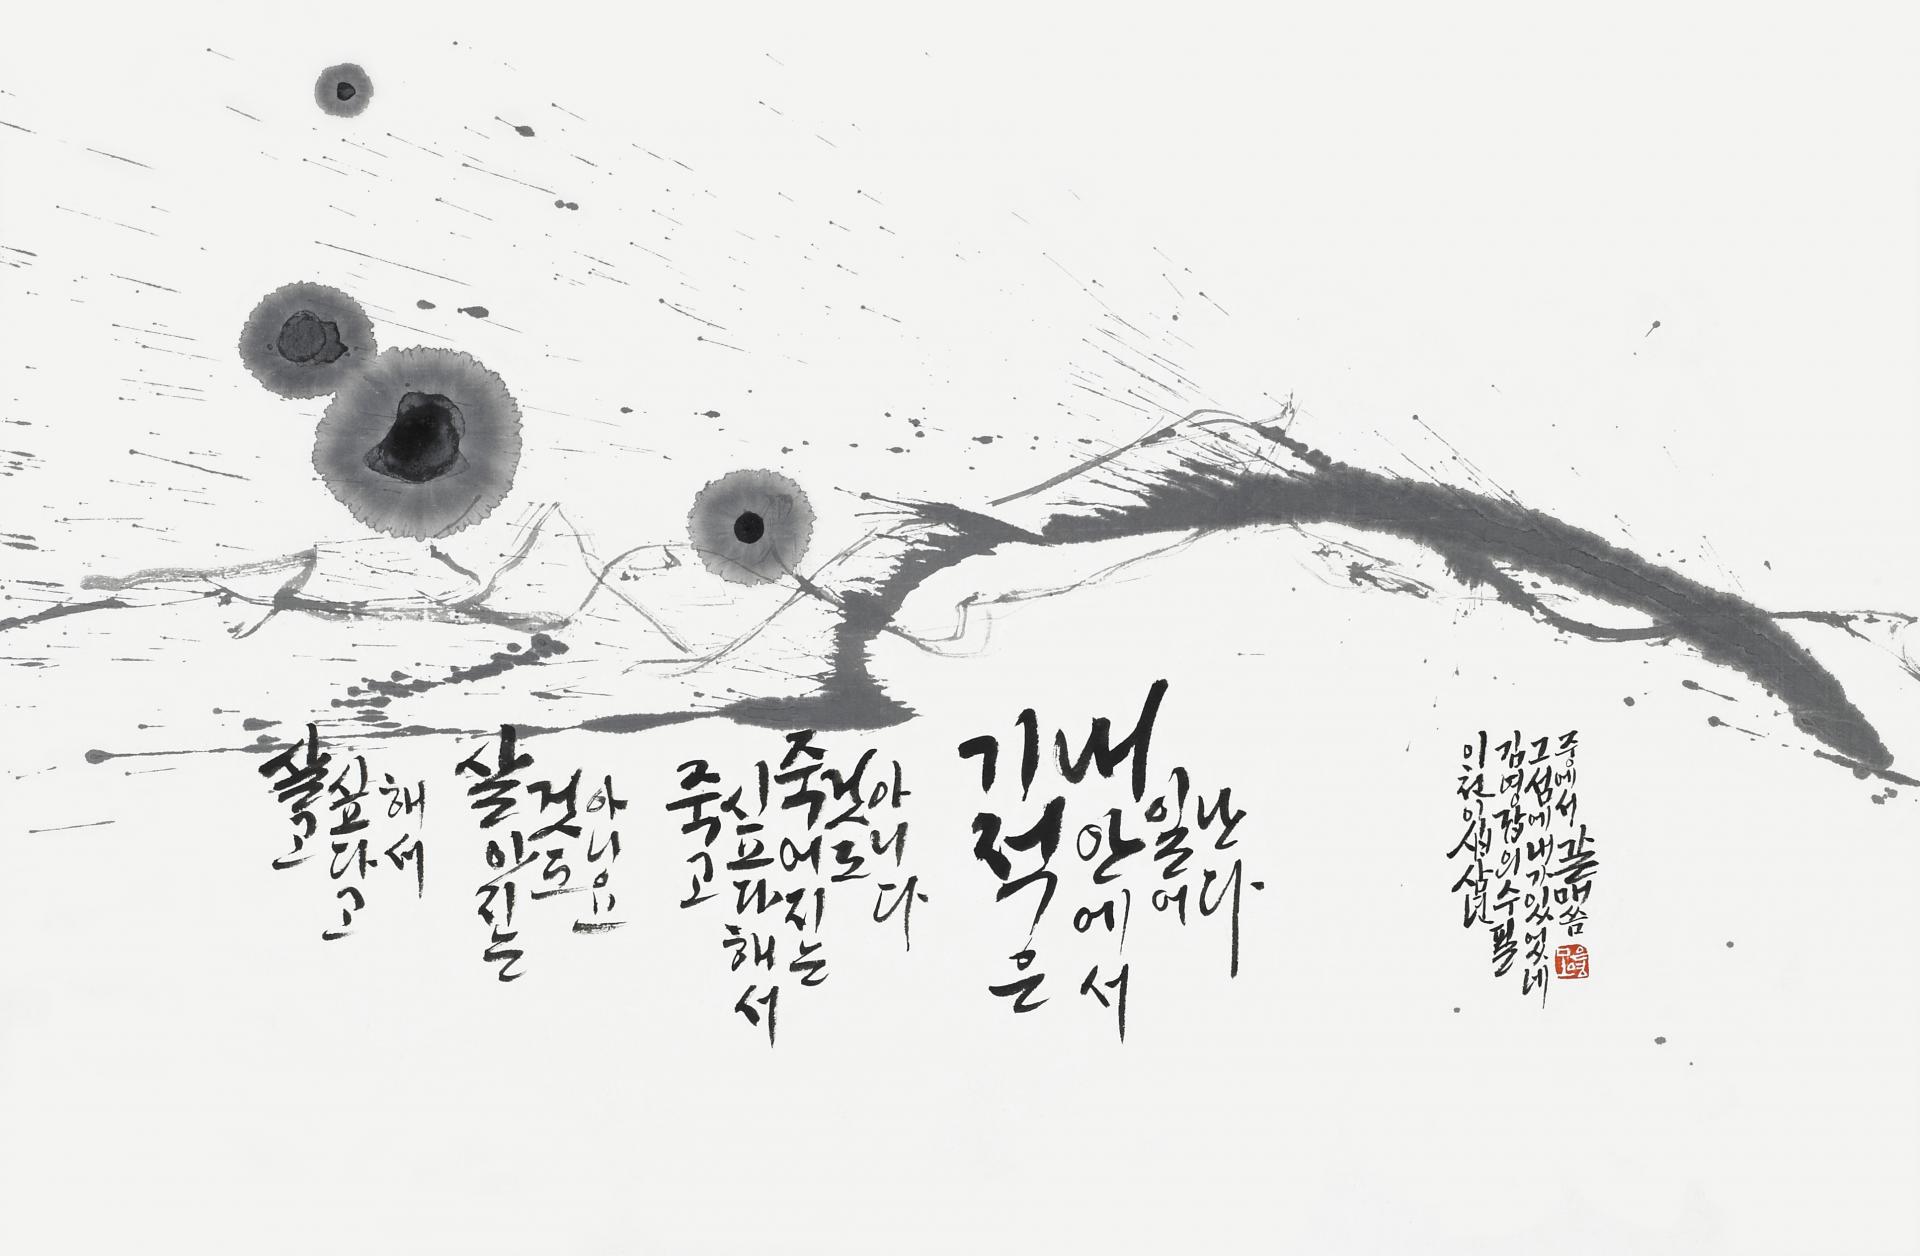 살고
싶다고
해서
살아지는
것도
아니요
죽고
싶다해서
죽어지는
것도
아니다
기적은
내 안에서
일어
난다
이천이십삼년
김영갑의 수필
그 섬에 내가 있었네
중에서 씀